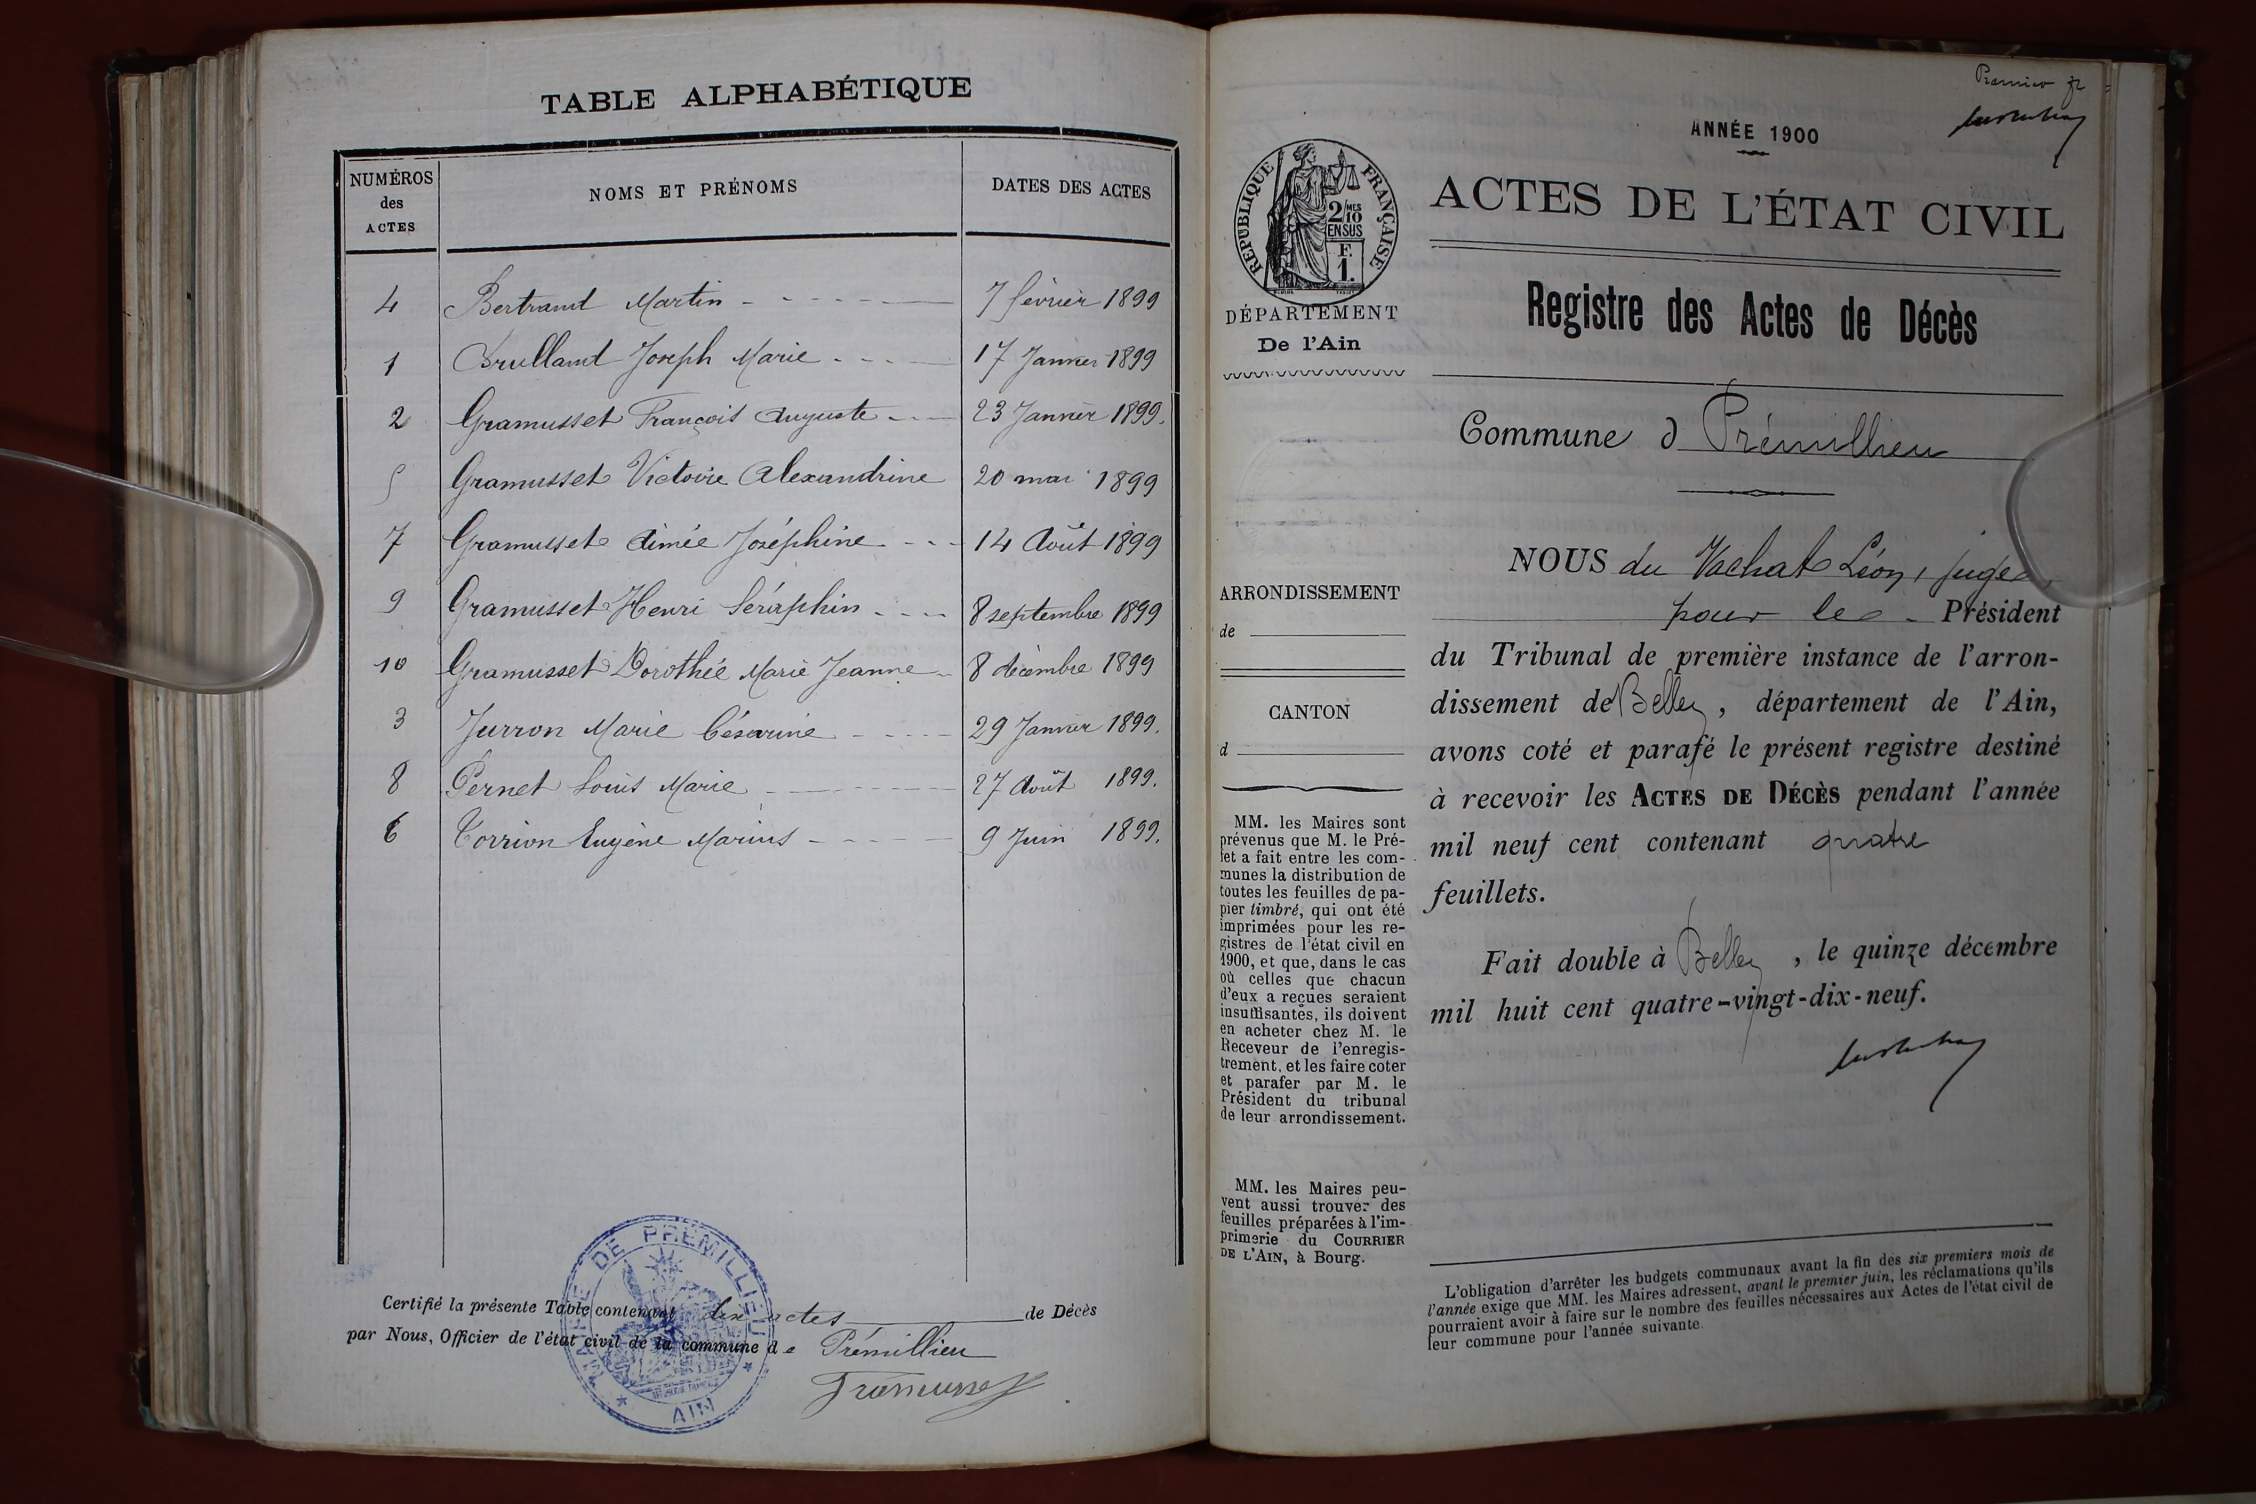 TABLE ALPHABÉTIQUE
NUMÉROS des ACTES NOMS ET PRÉNOMS DATES DES ACTES
4 Bertrand Martin 7 février 1899
1 Brulland Joseph Marie 17 Janvier 1899
2 Gramusset François Auguste 23 Janvier 1899.
5 Gramusset Victoire Alexandrine 20 mai 1899
7 Gramusset Aimée Joséphine 14 Août 1899
9 Gramusset Henri Séraphin 8 septembre 1899
10 Gramusset Dorothée Marie Jeanne 8 décembre 1899
3 Jurron Marie Césarine 29 Janvier 1899.
8 Pernet Louis Marie 27 Août 1899.
6 Torrion Eugène Marius 9 Juin 1899.
Certifié la présente Table contenant dix actes de Décès
par Nous, Officier de l'état civil de la commune de Prémillieu
MAIRIE DE PREMILLIEU
* AIN *
Gramusset
ANNÉE 1900
RÉPUBLIQUE FRANÇAISE
2/10 MES
EN SUS
F.
1.
ACTES DE L'ÉTAT CIVIL
DÉPARTEMENT
De l'Ain
Registre des Actes de Décès
Commune d Prémillieu
ARRONDISSEMENT
de
CANTON
d
MM. les Maires sont
prévenus que M. le Pré-
fet a fait entre les com-
munes la distribution de
toutes les feuilles de pa-
pier timbré, qui ont été
imprimées pour les re-
gistres de l'état civil en
1900, et que, dans le cas
où celles que chacun
d'eux a reçues seraient
insuffisantes, ils doivent
en acheter chez M. le
Receveur de l'enregis-
trement, et les faire coter
et parafer par M. le
Président du tribunal
de leur arrondissement.
MM. les Maires peu-
vent aussi trouver des
feuilles préparées à l'im-
primerie du COURRIER
DE L'AIN, à Bourg.
NOUS du Vachat Léon, juge
pour le Président
du Tribunal de première instance de l'arron-
dissement de Belley, département de l'Ain,
avons coté et parafé le présent registre destiné
à recevoir les ACTES DE DÉCÈS pendant l'année
mil neuf cent contenant quatre
feuillets.
Fait double à Belley, le quinze décembre
mil huit cent quatre-vingt-dix-neuf.
L'obligation d'arrêter les budgets communaux avant la fin des six premiers mois de
l'année exige que MM. les Maires adressent, avant le premier juin, les réclamations qu'ils
pourraient avoir à faire sur le nombre des feuilles nécessaires aux Actes de l'état civil de
leur commune pour l'année suivante.